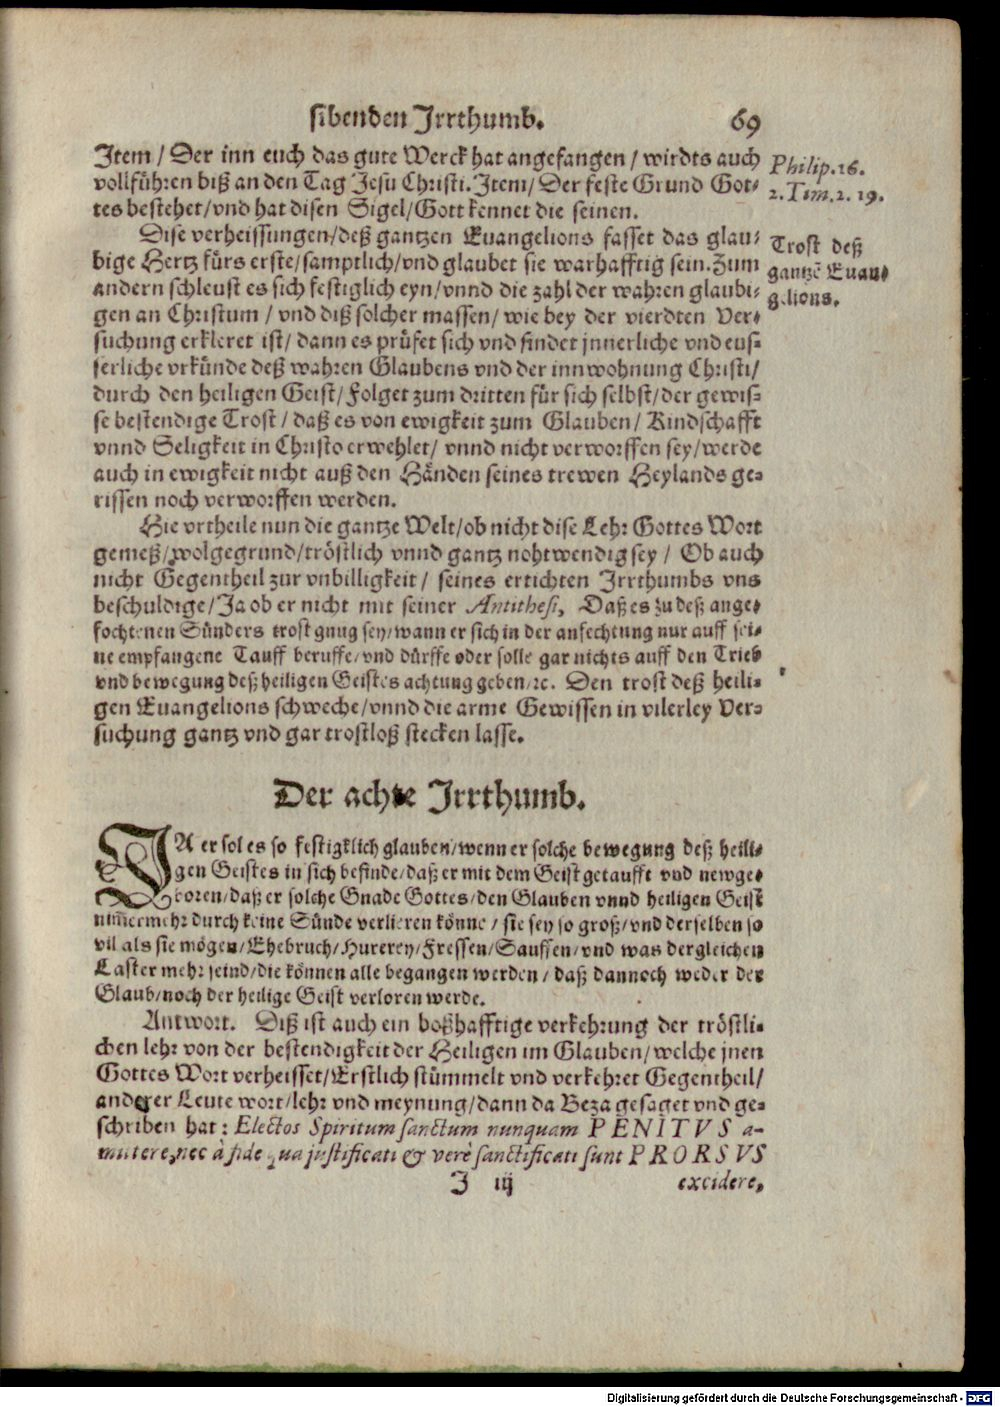 sibenden Jrrthumb. 69
Jtem / Der inn euch das gute Werck hat angefangen / wirdts auch
vollführen biß an den Tag Jesu Christi. Jtem / Der feste Grund Got-
tes bestehet / vnd hat disen Sigel / Gott kennet die seinen.
Philip. 16.
2. Tim. 2. 19.
Dise verheissungen / deß gantzen Euangelions fasset das glau-
bige Hertz fürs erste / samptlich / vnd glaubet sie warhafftig sein. Zum
andern schleust es sich festiglich eyn / vnnd die zahl der wahren glaubi-
gen an Christum / vnd diß solcher massen / wie bey der vierdten Ver-
suchung erkleret ist / dann es prüfet sich vnd findet jnnerliche vnd eus-
serliche vrkünde deß wahren Glaubens vnd der innwohnung Christi /
durch den heiligen Geist / Folget zum dritten für sich selbst / der gewis-
se bestendige Trost / daß es von ewigkeit zum Glauben / Kindschafft
vnnd Seligkeit in Christo erwehlet / vnnd nicht verworffen sey / werde
auch in ewigkeit nicht auß den Händen seines trewen Heylands ge-
rissen noch verworffen werden.
Trost deß
gantzē Euan-
gelions.
Hie vrtheile nun die gantze Welt / ob nicht dise Lehr Gottes Wort
gemeß / wolgegrund / tröstlich vnnd gantz nohtwendig sey / Ob auch
nicht Gegentheil zur vnbilligkeit / seines ertichten Jrrthumbs vns
beschuldige / Ja ob er nicht mit seiner Antithesi, Daß es zu deß ange-
fochtenen Sünders trost gnug sey / wann er sich in der anfechtung nur auff sei-
ne empfangene Tauff beruffe / vnd dürffe oder solle gar nichts auff den Trieb
vnd bewegung deß heiligen Geistes achtung geben / ꝛc. Den trost deß heili-
gen Euangelions schweche / vnnd die arme Gewissen in vilerley Ver-
suchung gantz vnd gar trostloß stecken lasse.
Der achte Jrrthumb.
JA er sol es so festigklich glauben / wenn er solche bewegung deß heili-
gen Geistes in sich befinde / daß er mit dem Geist getaufft vnd newge-
boren / daß er solche Gnade Gottes / den Glauben vnnd heiligen Geist
nim̄ermehr durch keine Sünde verlieren könne / sie sey so groß / vnd derselben so
vil als sie mögen / Ehebruch / Hurerey / Fressen / Sauffen / vnd was dergleichen
Laster mehr seind / die können alle begangen werden / daß dannoch weder der
Glaub / noch der heilige Geist verloren werde.
Antwort. Diß ist auch ein boßhafftige verkehrung der tröstli-
chen lehr von der bestendigkeit der Heiligen im Glauben / welche jnen
Gottes Wort verheisset / Erstlich stümmelt vnd verkehret Gegentheil /
anderer Leute wort / lehr vnd meynung / dann da Beza gesaget vnd ge-
schriben hat : Electos Spiritum sanctum nunquam PENITVS a-
mittere, nec à fide qua justificati & verè sanctificati sunt PRORSVS
J iij excidere,
Digitalisierung gefördert durch die Deutsche Forschungsgemeinschaft - DFG